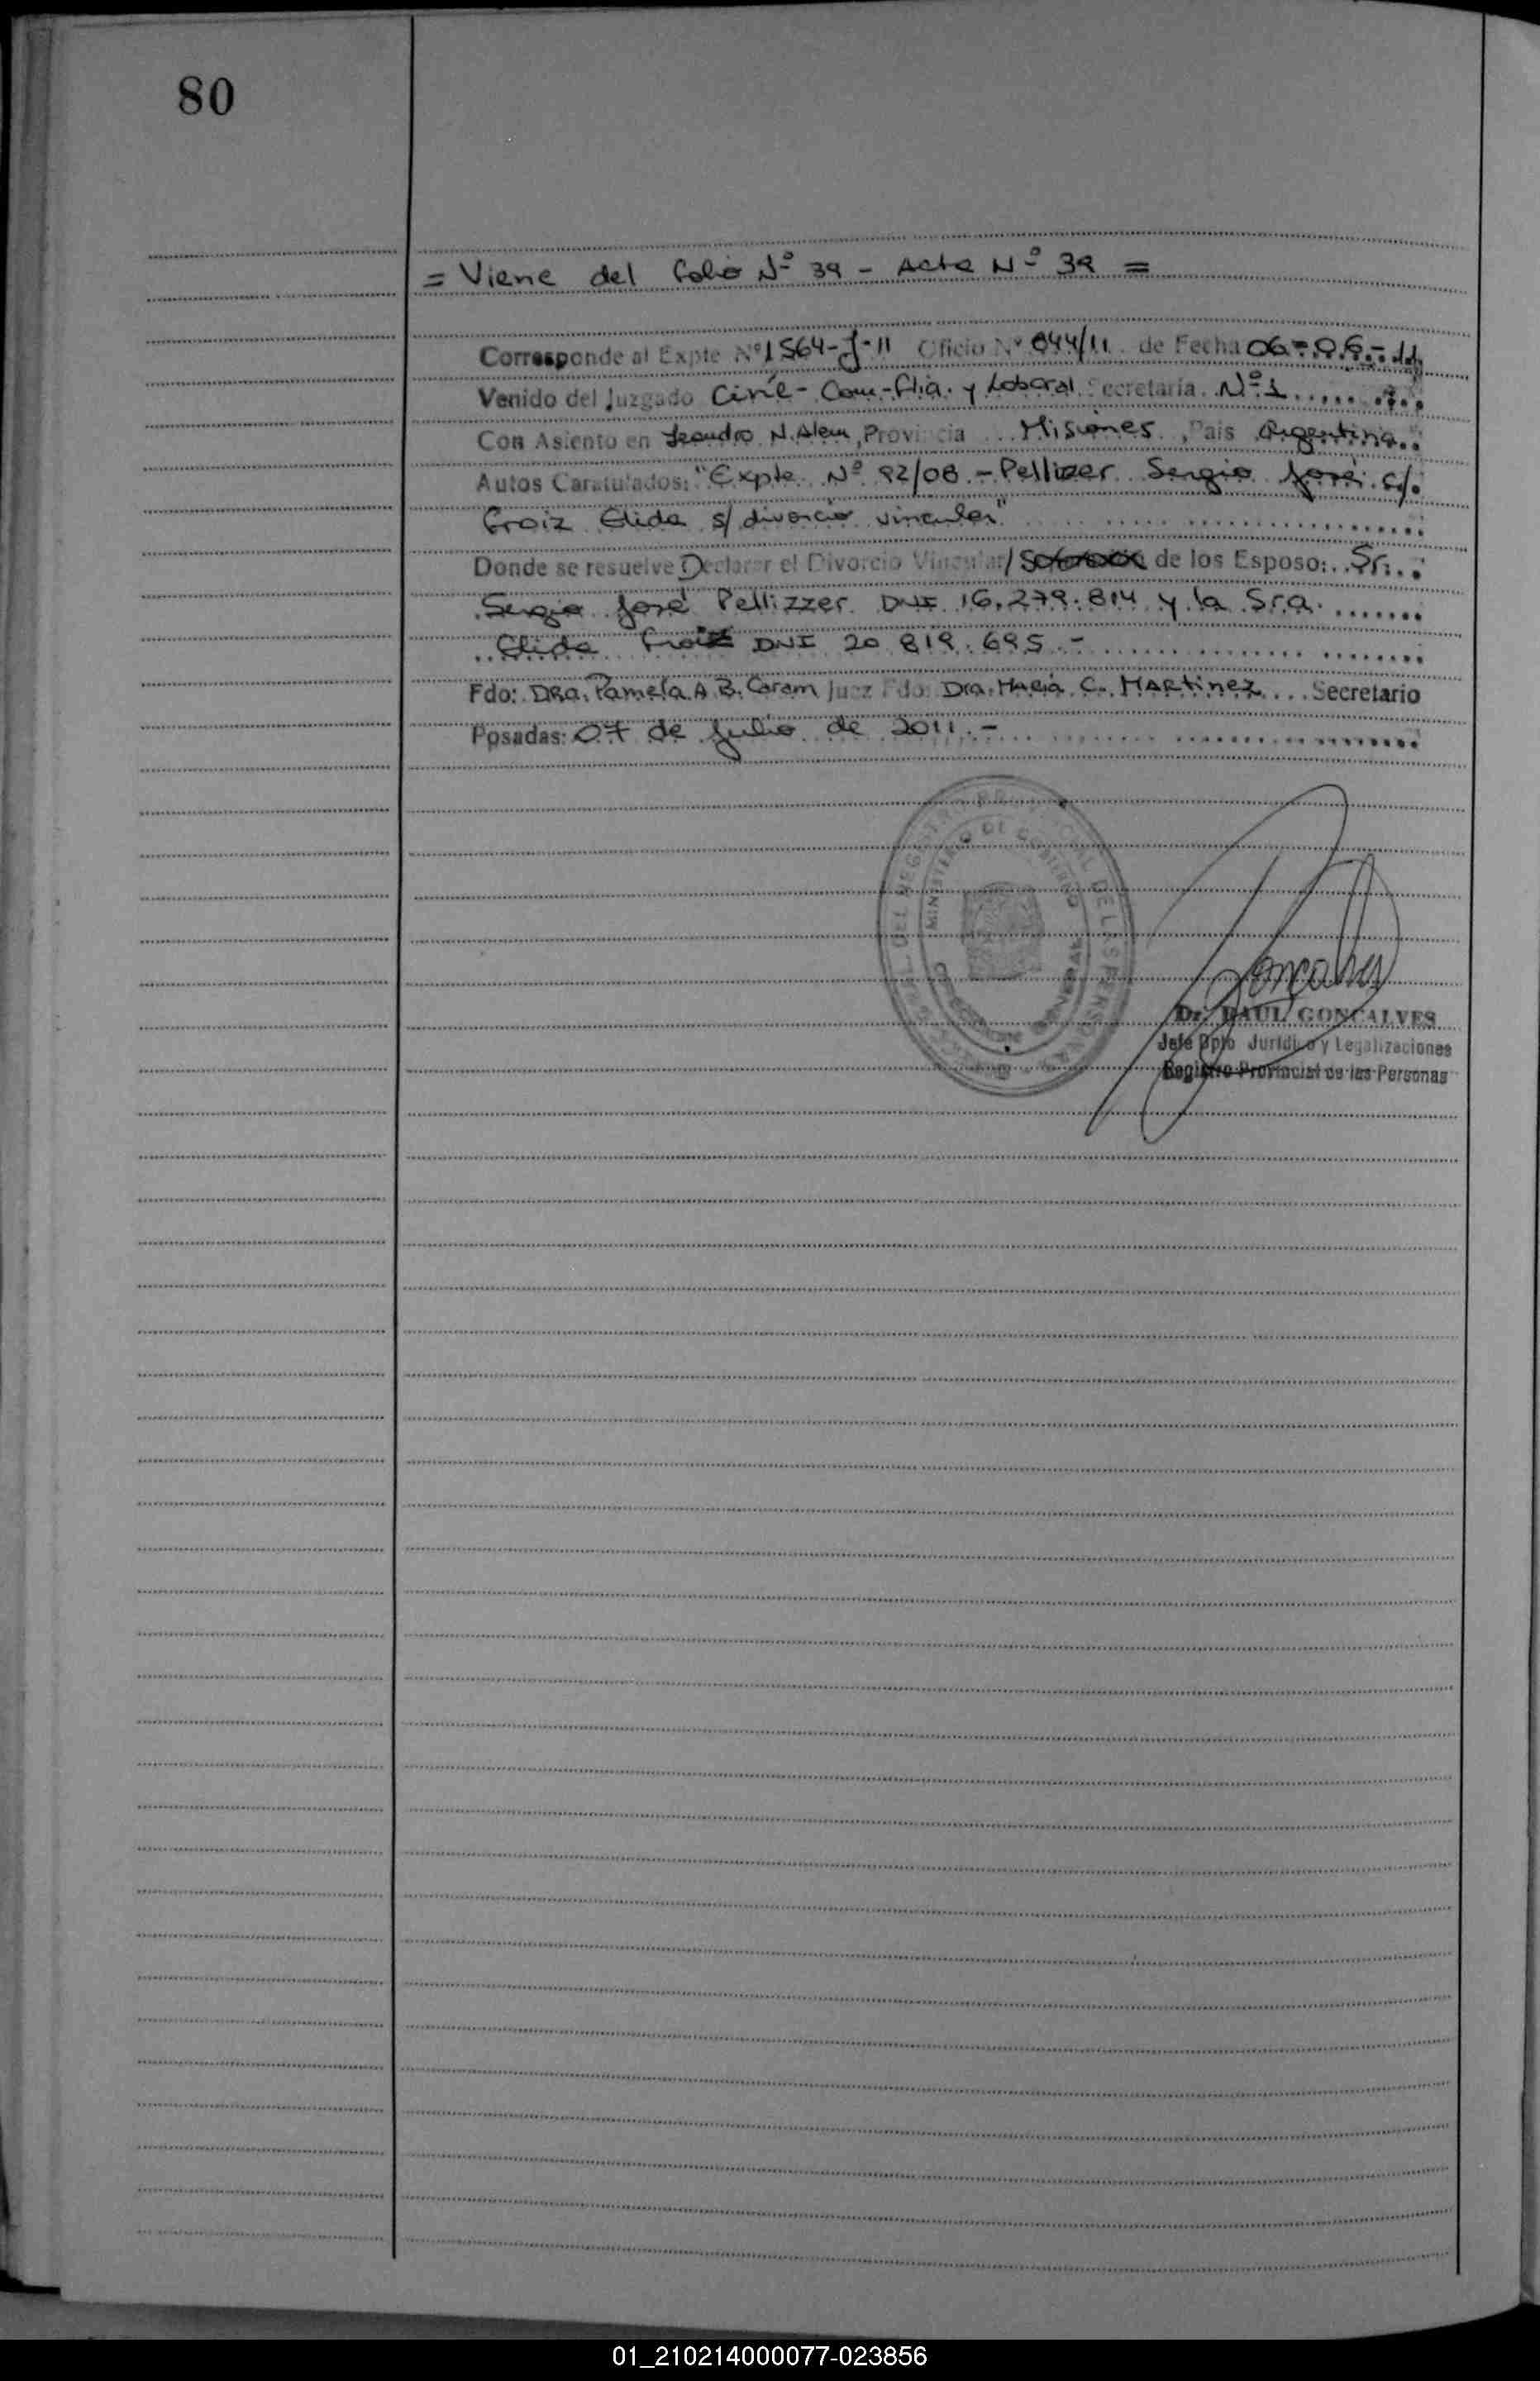 80
= Viene del folio Nº 39 - Acta Nº 39 =
Corresponde al Expte Nº 1564-J-11 Oficio Nº 044/11 de Fecha 06-06-11
Venido del Juzgado Civil-Com-Flia. y Laboral Secretaría Nº 1
Con Asiento en Leandro N. Alem, Provincia Misiones, Pais Argentina
Autos Caratulados: "Expte Nº 92/08 - Pellizer Sergio José c/
Froiz Elida s/ divorcio vincular"
Donde se resuelve Declarar el Divorcio Vincular/ de los Esposo: Sr.
Sergio José Pellizzer DNI 16.279.814 y la Sra.
Elida DNI 20 819.695 -
Fdo: DRA. Pamela A B. Caram Juez Fdo: Dra. María C. Martinez Secretario
Posadas: 07 de Julio de 2011.-
MINISTERIO DE GOBIERNO
Goncalves
Dr. RAUL GONCALVES
Jefe Dpto Jurídico y Legalizaciones
Registro Provincial de las Personas
01_210214000077-023856